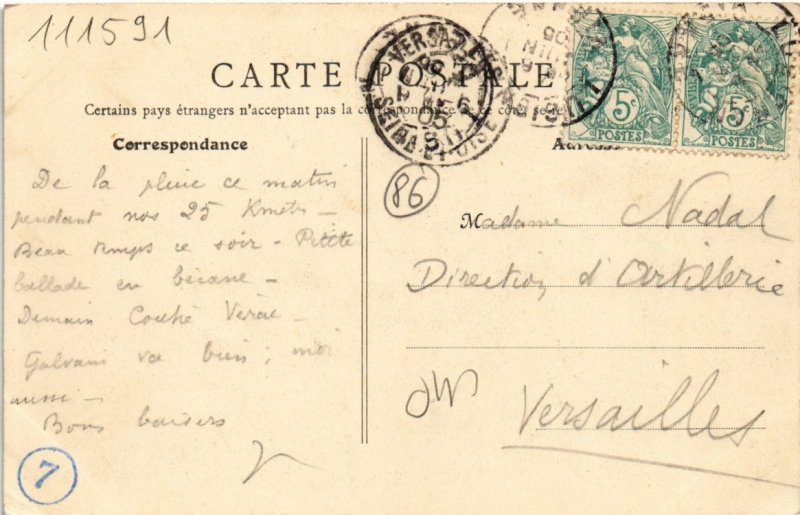 111591
CARTE POSTALE
Certains pays étrangers n'acceptent pas la correspondance de ce côté se
Correspondance
De la pluie ce matin
pendant nos 25 Kmets –
Beau temps ce soir – Petite
ballade en bécane –
Demain Couhé Vérac –
Galvani va bien ; moi
aussi –
Bons baisers
7
86
VERSAILLES
05
SEINE-ET-OISE
5c
POSTES
5c
POSTES
Adresse
Madame Nadal
Direction d'Artillerie
Versailles